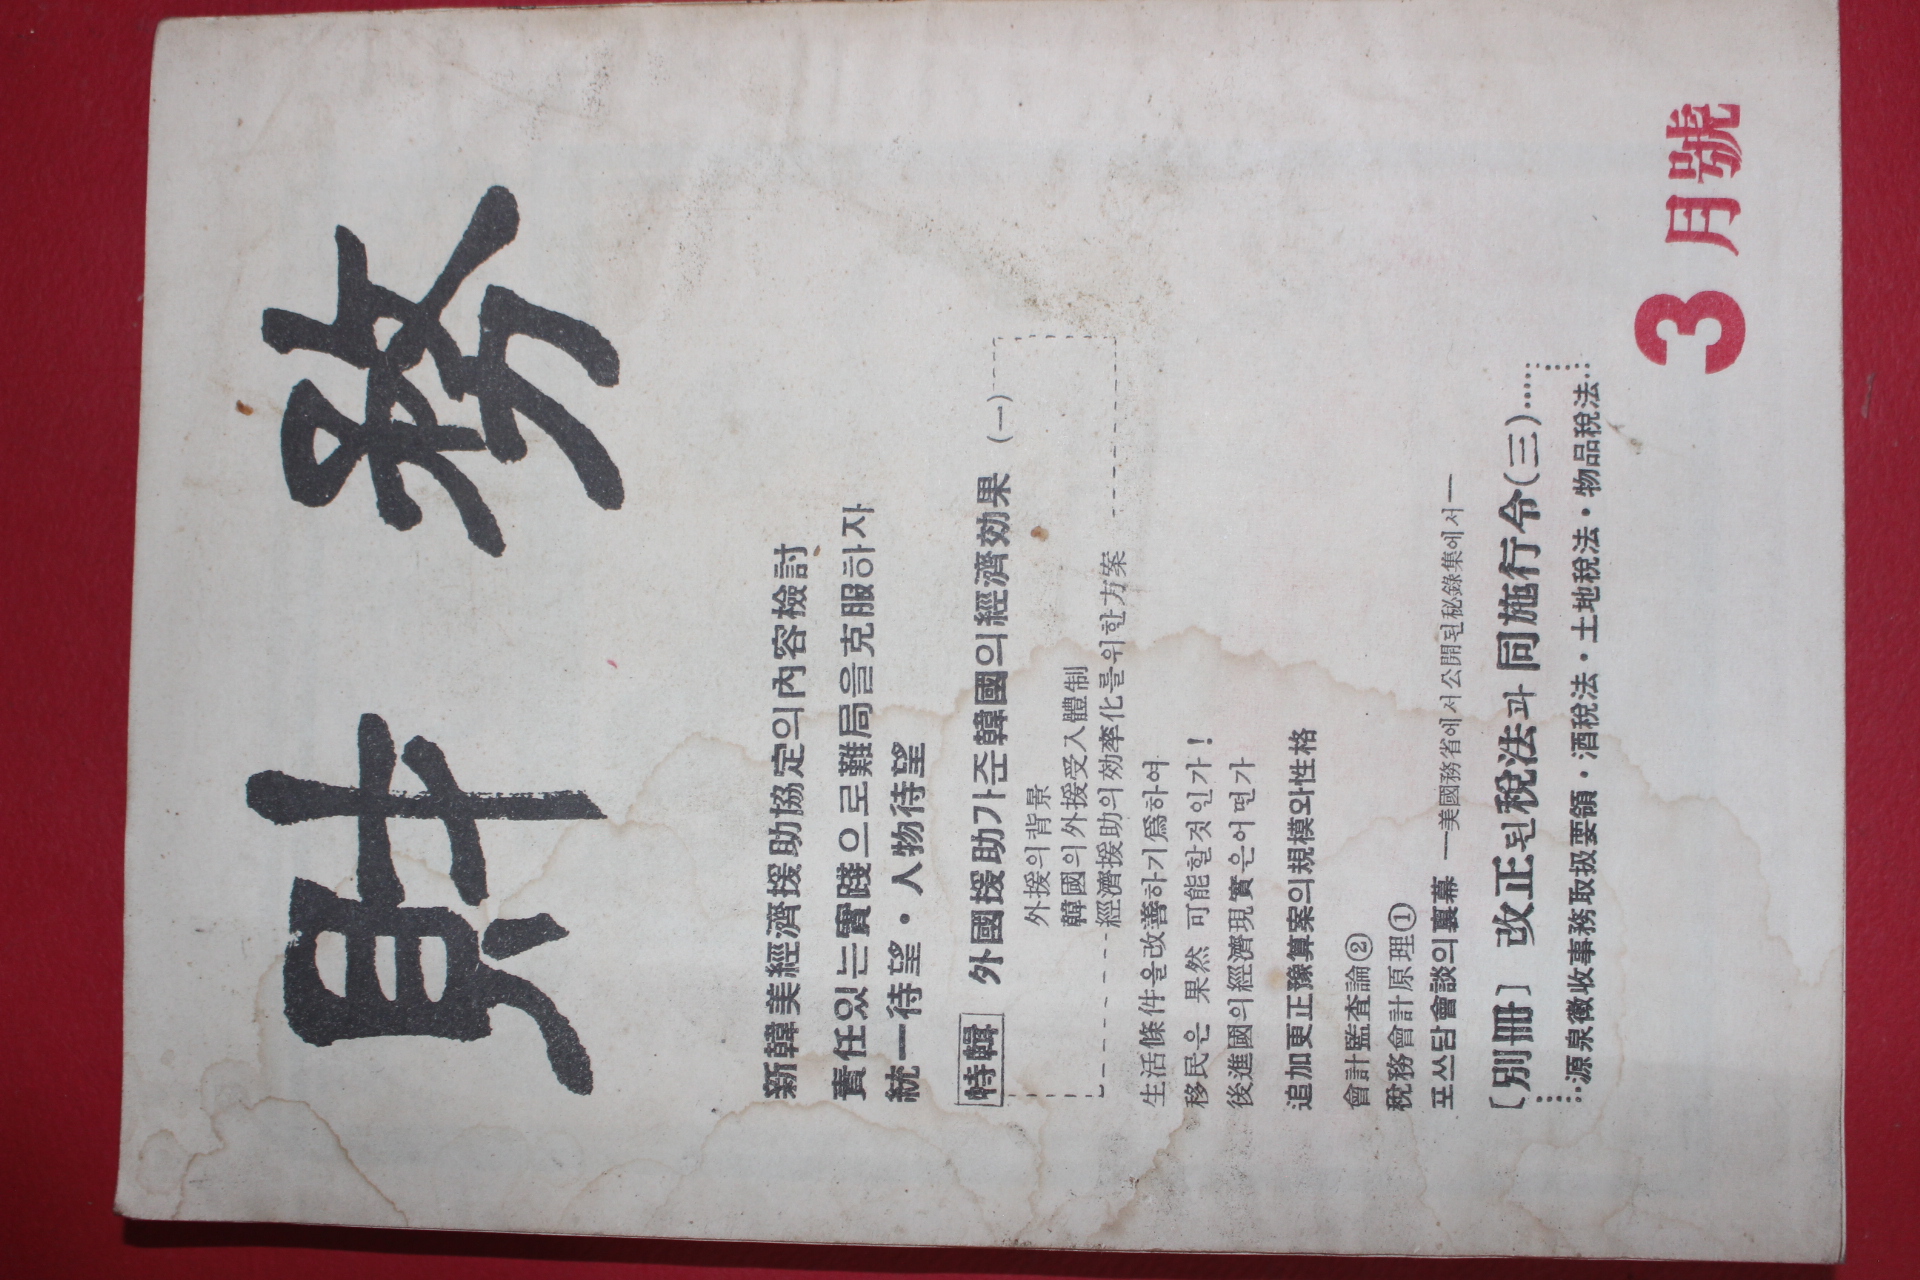 財務
新韓美經濟援助協定의內容檢討
責任있는實踐으로難局을克服하자
統一待望・人物待望
特輯 外國援助가준韓國의經濟効果 (一)
外援의背景
韓國의外援受入體制
經濟援助의効率化를위한方案
生活條件을改善하기爲하여
移民은 果然 可能할것인가!
後進國의經濟現實은어떤가
追加更正豫算案의規模와性格
會計監査論②
稅務會計原理①
포쓰담會談의裏幕 —美國務省에서公開된秘錄集에서—
[別冊] 改正된稅法과 同施行令(三)
源泉徵收事務取扱要領・酒稅法・土地稅法・物品稅法
3月號